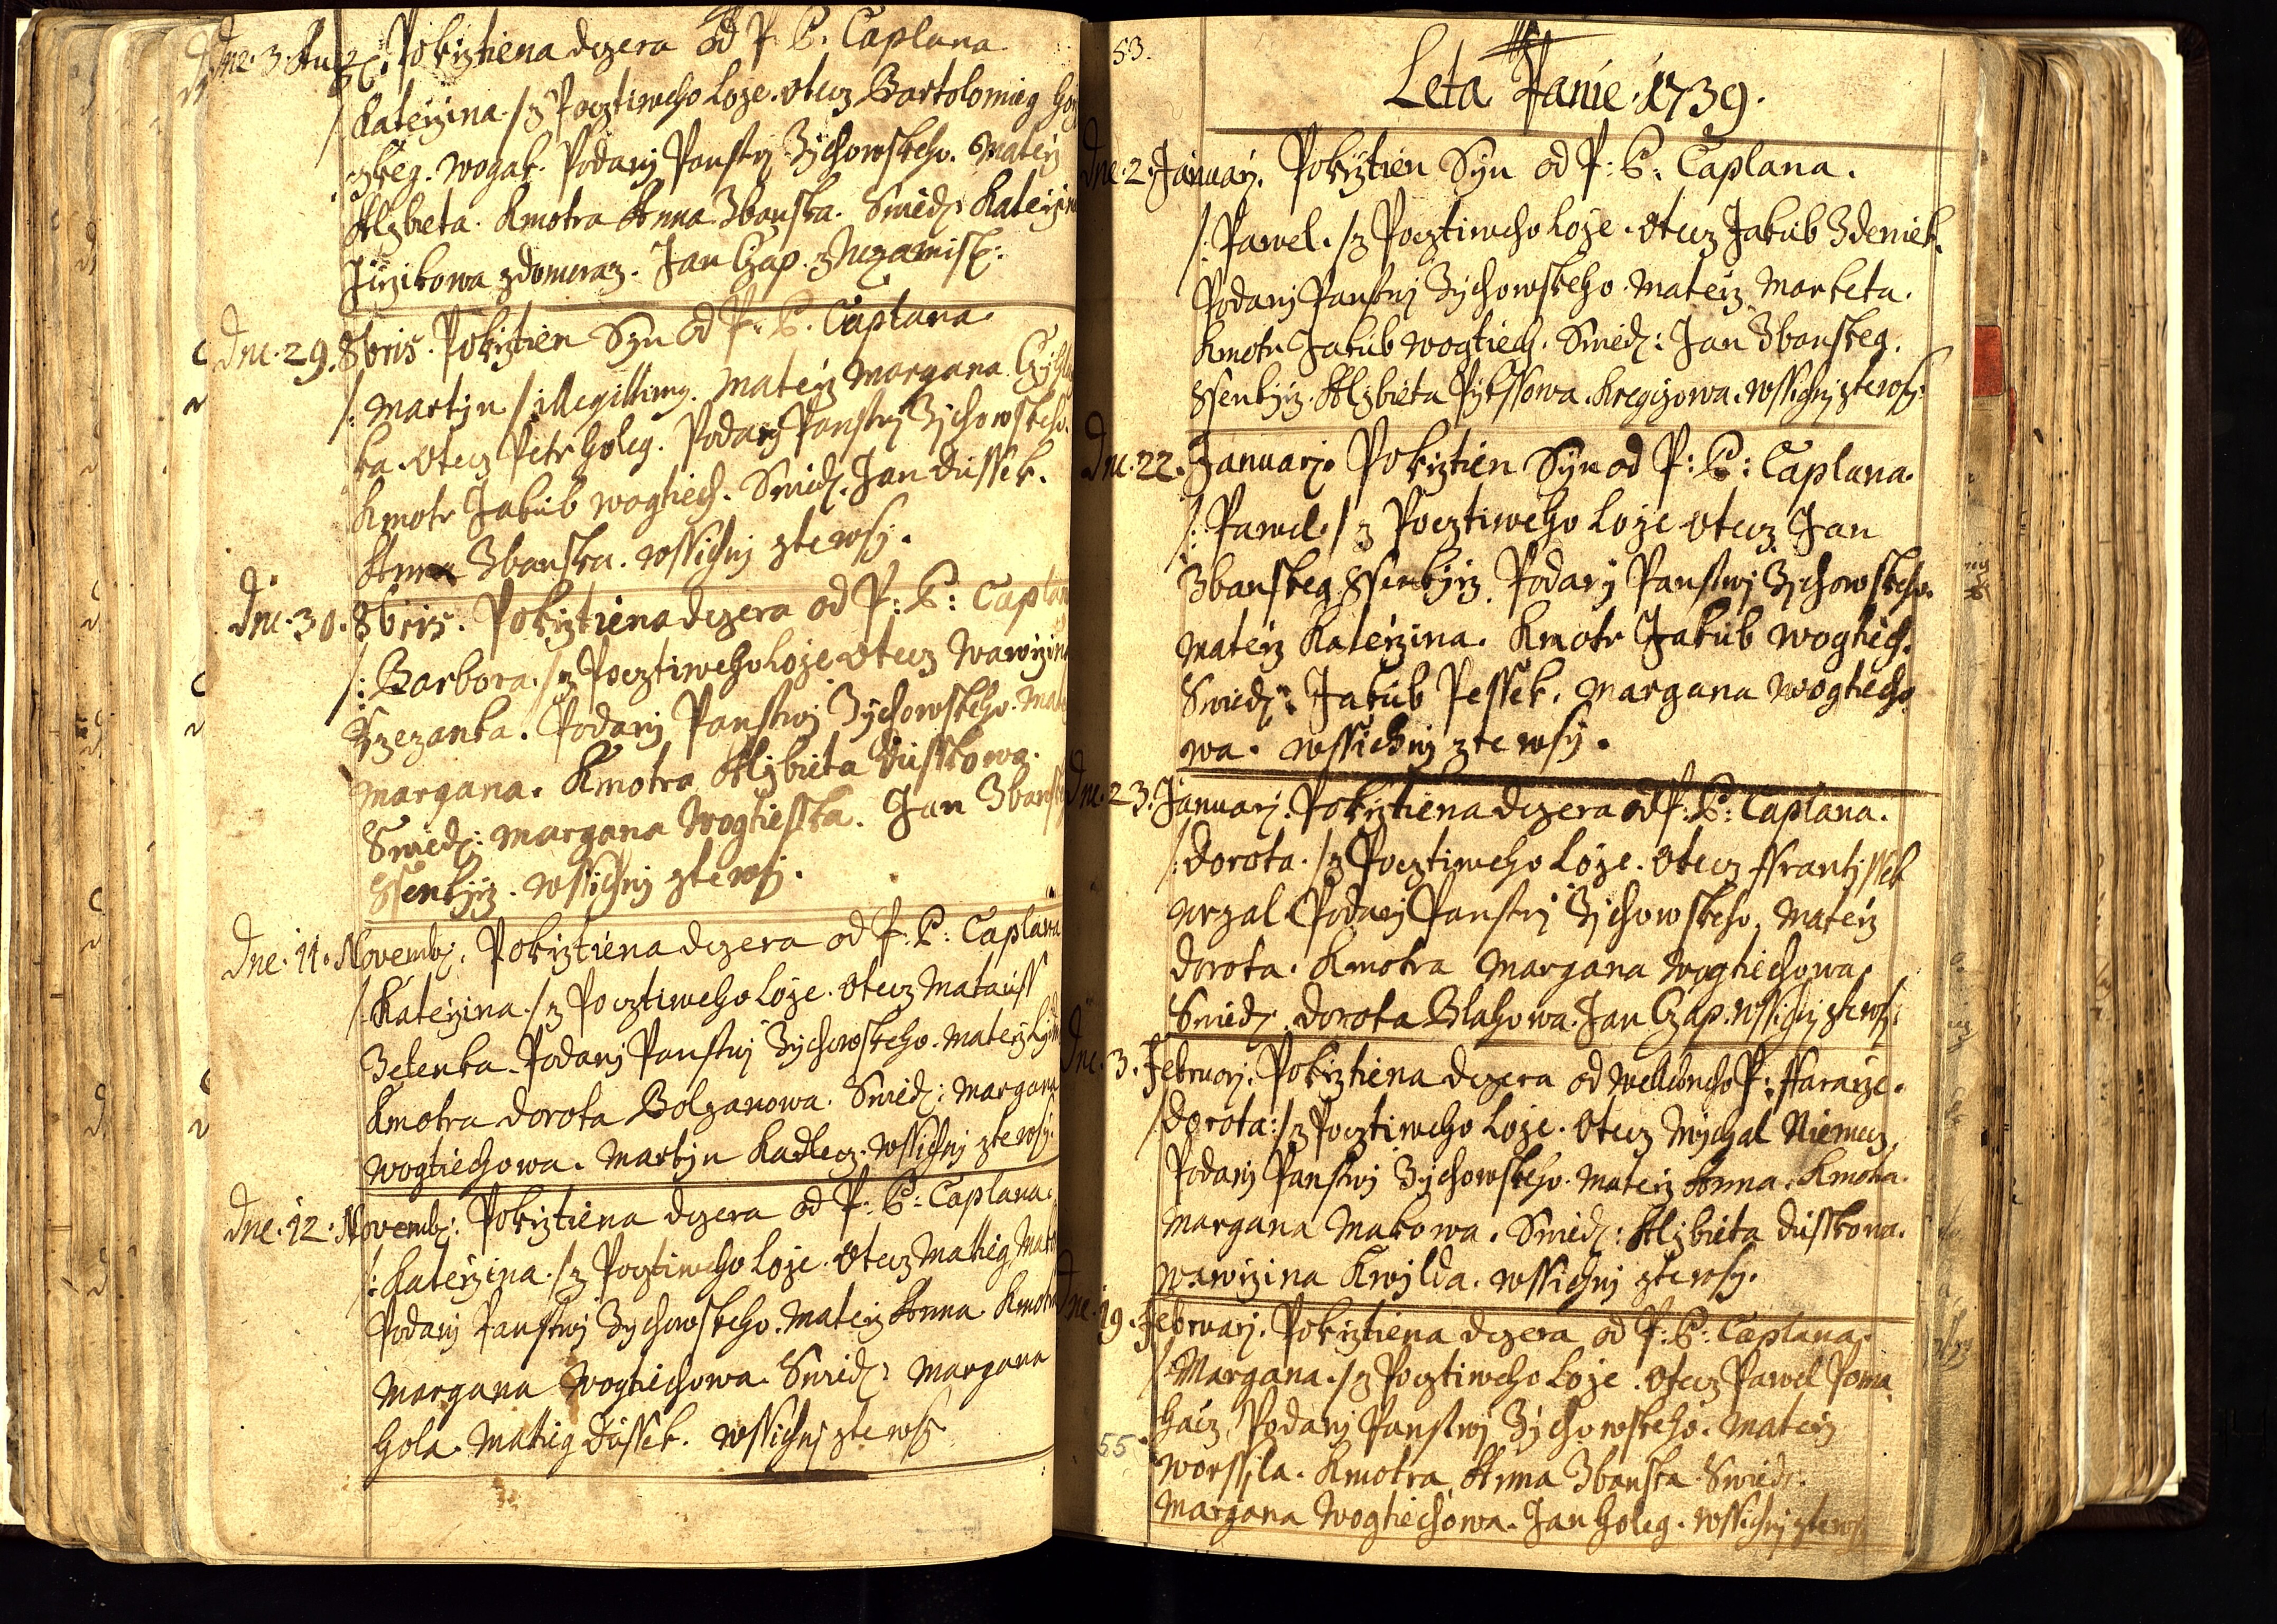 Dne. 3. Pokrztiena dczera od P: P: Caplana
/: Katerzina. /: z Pocztiweho Loze. Otecz Bartolomieg
wogak. Podany Panstwj Zychowskeho. Materz
Alzbieta. Kmotra Anna Zbanska. Swied: Katerzina
Girzikowa z domeraz. Jan Czap. z
Dne. 29. 8bris. Pokrztien Syn od P: P: Caplana.
/: Martyn /: illegittimy. Materz Margana
ka. Otecz Petr Goleg. Podany Panstwj Zychowskeho.
Kmotr Jakub wogtiech. Swied: Jan Dussek.
Anna Zbanska. wssichnj zte wsy.
Dne. 30. 8bris. Pokrztiena dczera od P: P: Caplana
/: Barbora. /: z Pocztiweho Loze Otecz Wawrzin
Rzezanka. Podany Panstwj Zychowskeho.
Margana. Kmotra Alzbieta Dusskowa.
Swied: Margana Wogtieska. Jan Zbansk
Ssenkyrz. wssichnj zte wsy.
Dne. 11. Novemb: Pokrztiena dczera od P: P: Caplana
/: Katerzina. /: z Pocztiweho Loze. Otecz Matauss
Zelenka. Podany Panstwj Zychowskeho. Materz
Kmotra Dorota Bolzanowa. Swied: Margana
Wogtiechowa. Martyn Kadlecz. wssichnj zte wsy.
Dne. 12. Novemb: Pokrztiena dczera od P: P: Caplana.
/: Katerzina. /: z Pocztiweho Loze. Otecz Mattieg
Podany Panstwj Zychowskeho. Materz Anna. Kmotra
Margana Wogtiechowa. Swied: Margana
Gola. Mattieg Dussek. wssichnj zte wsy
53.
Leta Panie 1739.
Dne. 2. Januarj. Pokrztien Syn od P: P: Caplana.
/: Pawel. /: z Pocztiweho Loze. Otecz Jakub Zdeniek.
Podany Panstwj Zychowskeho. Materz Marketa.
Kmotr Jakub Wogtiech. Swied: Jan Zbanskeg.
Ssenkyrz. Alzbieta Pykssowa. Kregczowa. wssichnj zte wsy.
Dne. 22. Januarj. Pokrztien Syn od P: P: Caplana.
/: Pawel. /: z Pocztiweho Loze Otecz Jan
Zbanskeg Ssenkyrz. Podany Panstwj Zychowskeho.
Materz Katerzina. Kmotr Jakub Wogtiech.
Swied: Jakub Pessek. Margana Wogtiecho
wa. wssichnj zte wsy.
Dne. 23. Januarj. Pokrztiena dczera od P: P: Caplana.
/: Dorota. /: z Pocztiweho Loze. Otecz Frantyssek
Wrzal Podany Panstwj Zychowskeho. Materz
Dorota. Kmotra Margana Wogtiechowa.
Swied: Dorota Blahowa. Jan Czap. wssichnj zte wsy.
Dne. 3. Februarj. Pokrztiena dczera od P: Ffararze.
/: Dorota: /: z Pocztiweho Loze. Otecz Mychal Niemecz.
Podany Panstwj Zychowskeho. Materz Anna. Kmotra.
Margana Makowa. Swied: Alzbieta Dusskowa.
Wawrzina Kwylda. wssichnj zte wsy.
Dne. 19. Februarj. Pokrztiena dczera od P: P: Caplana.
/: Margana. /: z Pocztiweho Loze. Otecz Pawel Poma
hacz, Podany Panstwj Zychowskeho. Materz
55.
Worssila. Kmotra Anna Zbanska. Swied:
Margana Wogtiechowa. Jan Goleg. wssichnj zte wsy